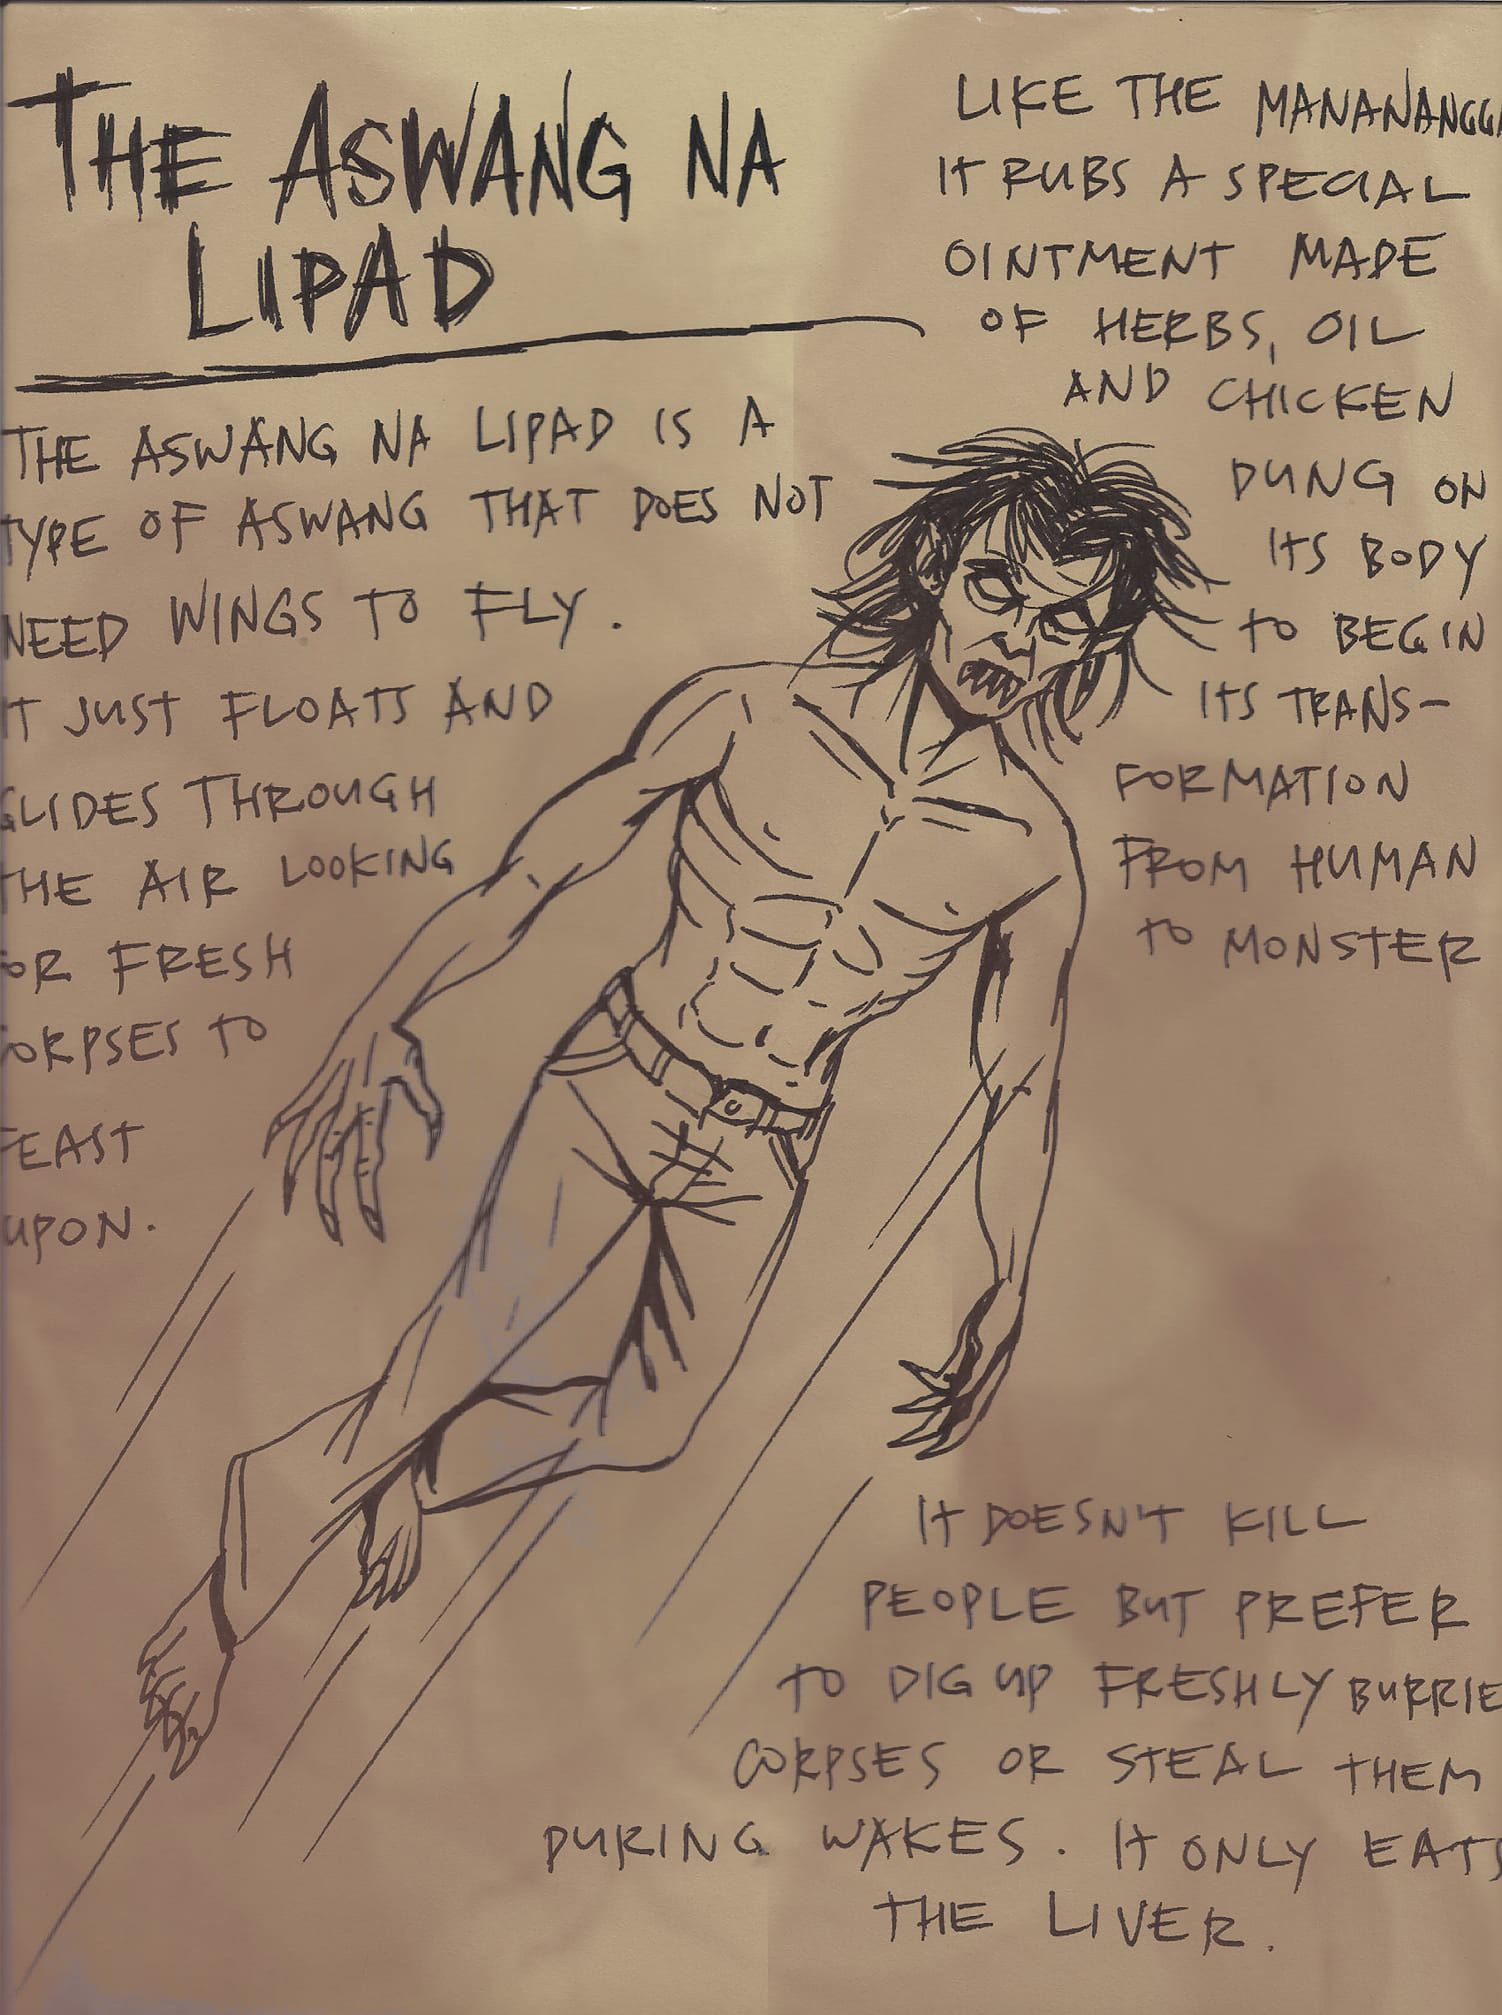 THE ASWANG NA
LIPAD
THE ASWANG NA LIPAD IS A
TYPE OF ASWANG THAT DOES NOT
NEED WINGS TO FLY.
IT JUST FLOATS AND
GLIDES THROUGH
THE AIR LOOKING
FOR FRESH
CORPSES TO
FEAST
UPON.
LIKE THE MANANANGGA
IT RUBS A SPECIAL
OINTMENT MADE
OF HERBS, OIL
AND CHICKEN
DUNG ON
ITS BODY
TO BEGIN
ITS TRANS-
FORMATION
FROM HUMAN
TO MONSTER
IT DOESN'T KILL
PEOPLE BUT PREFER
TO DIG UP FRESHLY BURRIE
CORPSES OR STEAL THEM
DURING WAKES. IT ONLY EATS
THE LIVER.